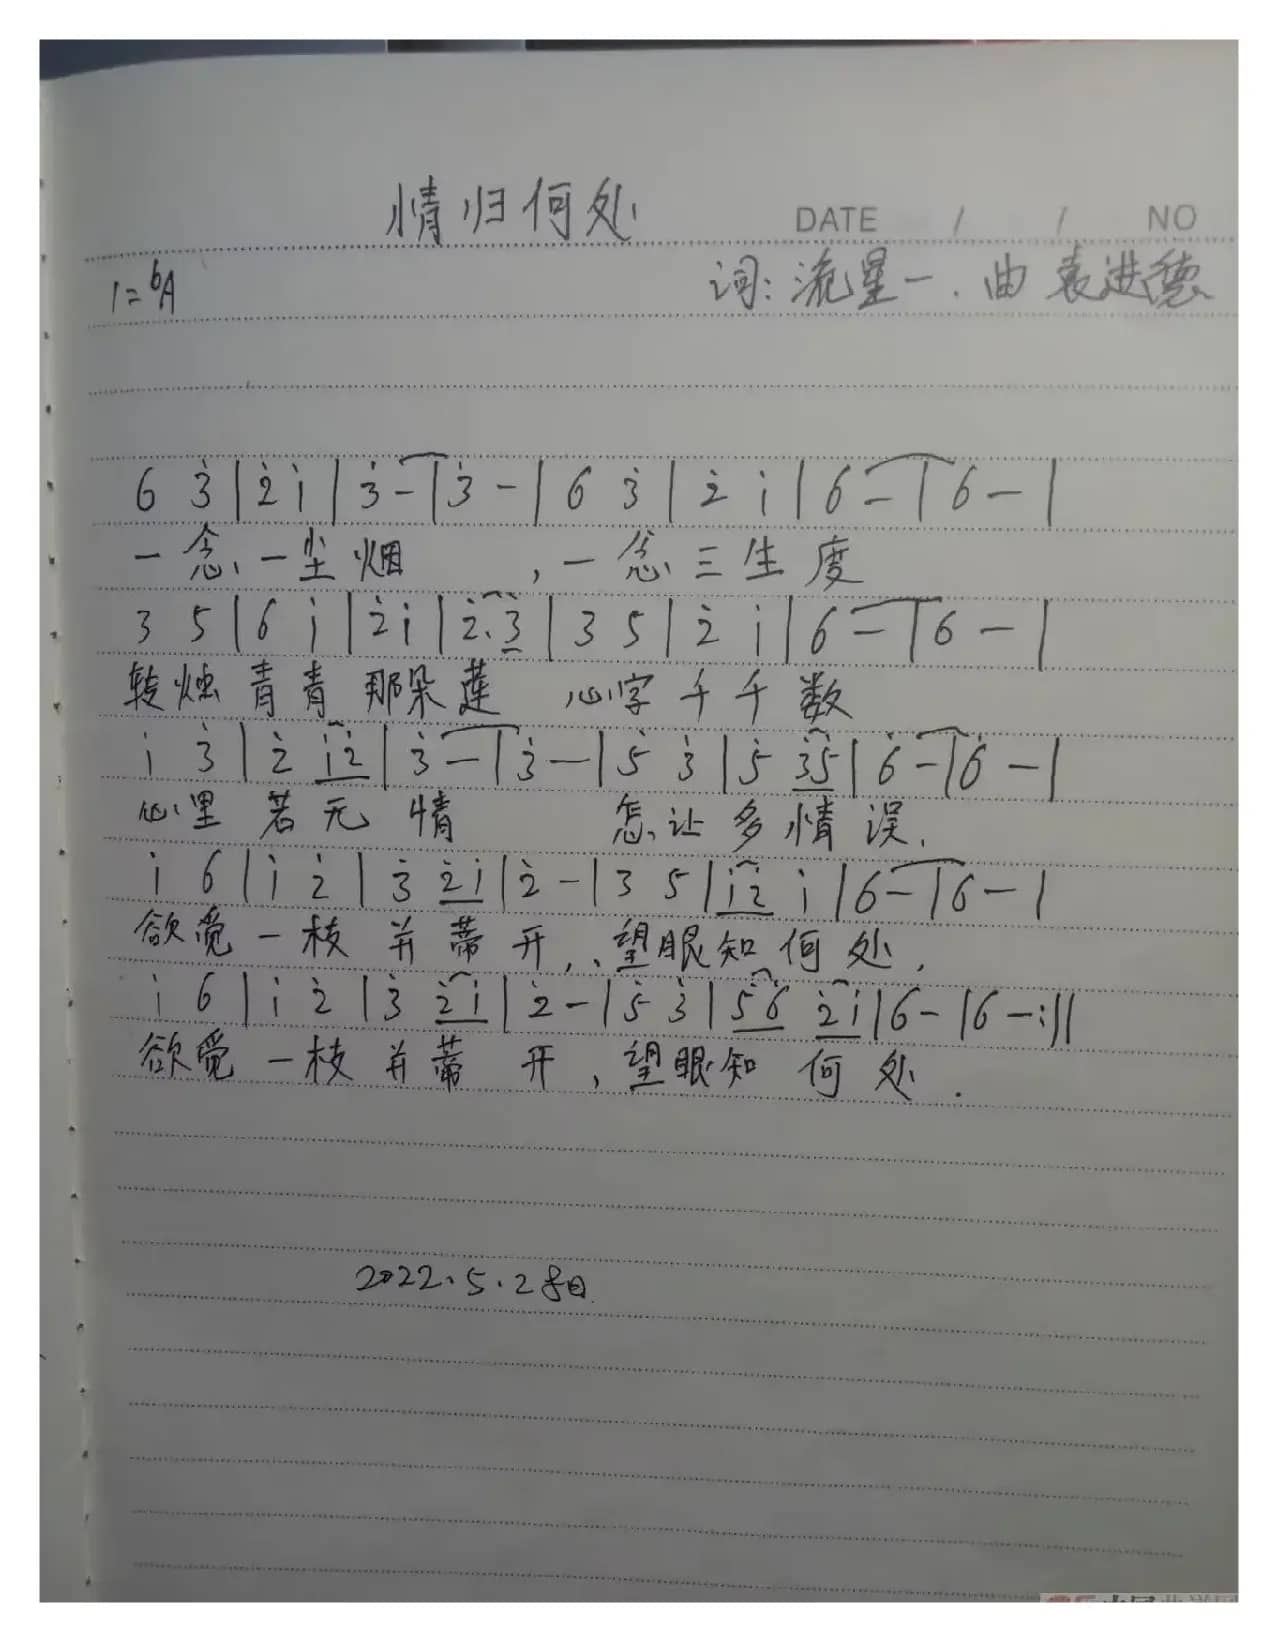 情归何处
DATE / / NO
1=ᵇA
词:流星一.曲 袁进德
6 3̇|2̇ 1̇|3̇ -|3̇ -|6 3̇|2̇ 1̇|6 -|6 -|
一念一尘烟,一念三生度
3 5|6 1̇|2̇ 1̇|2̇. 3̇|3 5|2̇ 1̇|6 -|6 -|
转烛青青那朵莲 心字千千数
1̇ 3̇|2̇ 1̇2̇|3̇ -|3̇ -|5̇ 3̇|5̇ 3̇5̇|6̇ -|6̇ -|
心里若无情 怎让多情误.
1̇ 6|1̇ 2̇|3̇ 2̇1̇|2̇ -|3 5|1̇2̇ 1̇|6 -|6 -|
欲觉一枝并蒂开,望眼知何处,
1̇ 6|1̇ 2̇|3̇ 2̇1̇|2̇ -|5̇ 3̇|5̇6̇ 2̇1̇|6 -|6 -:||
欲觉一枝并蒂开,望眼知何处.
2022.5.28日